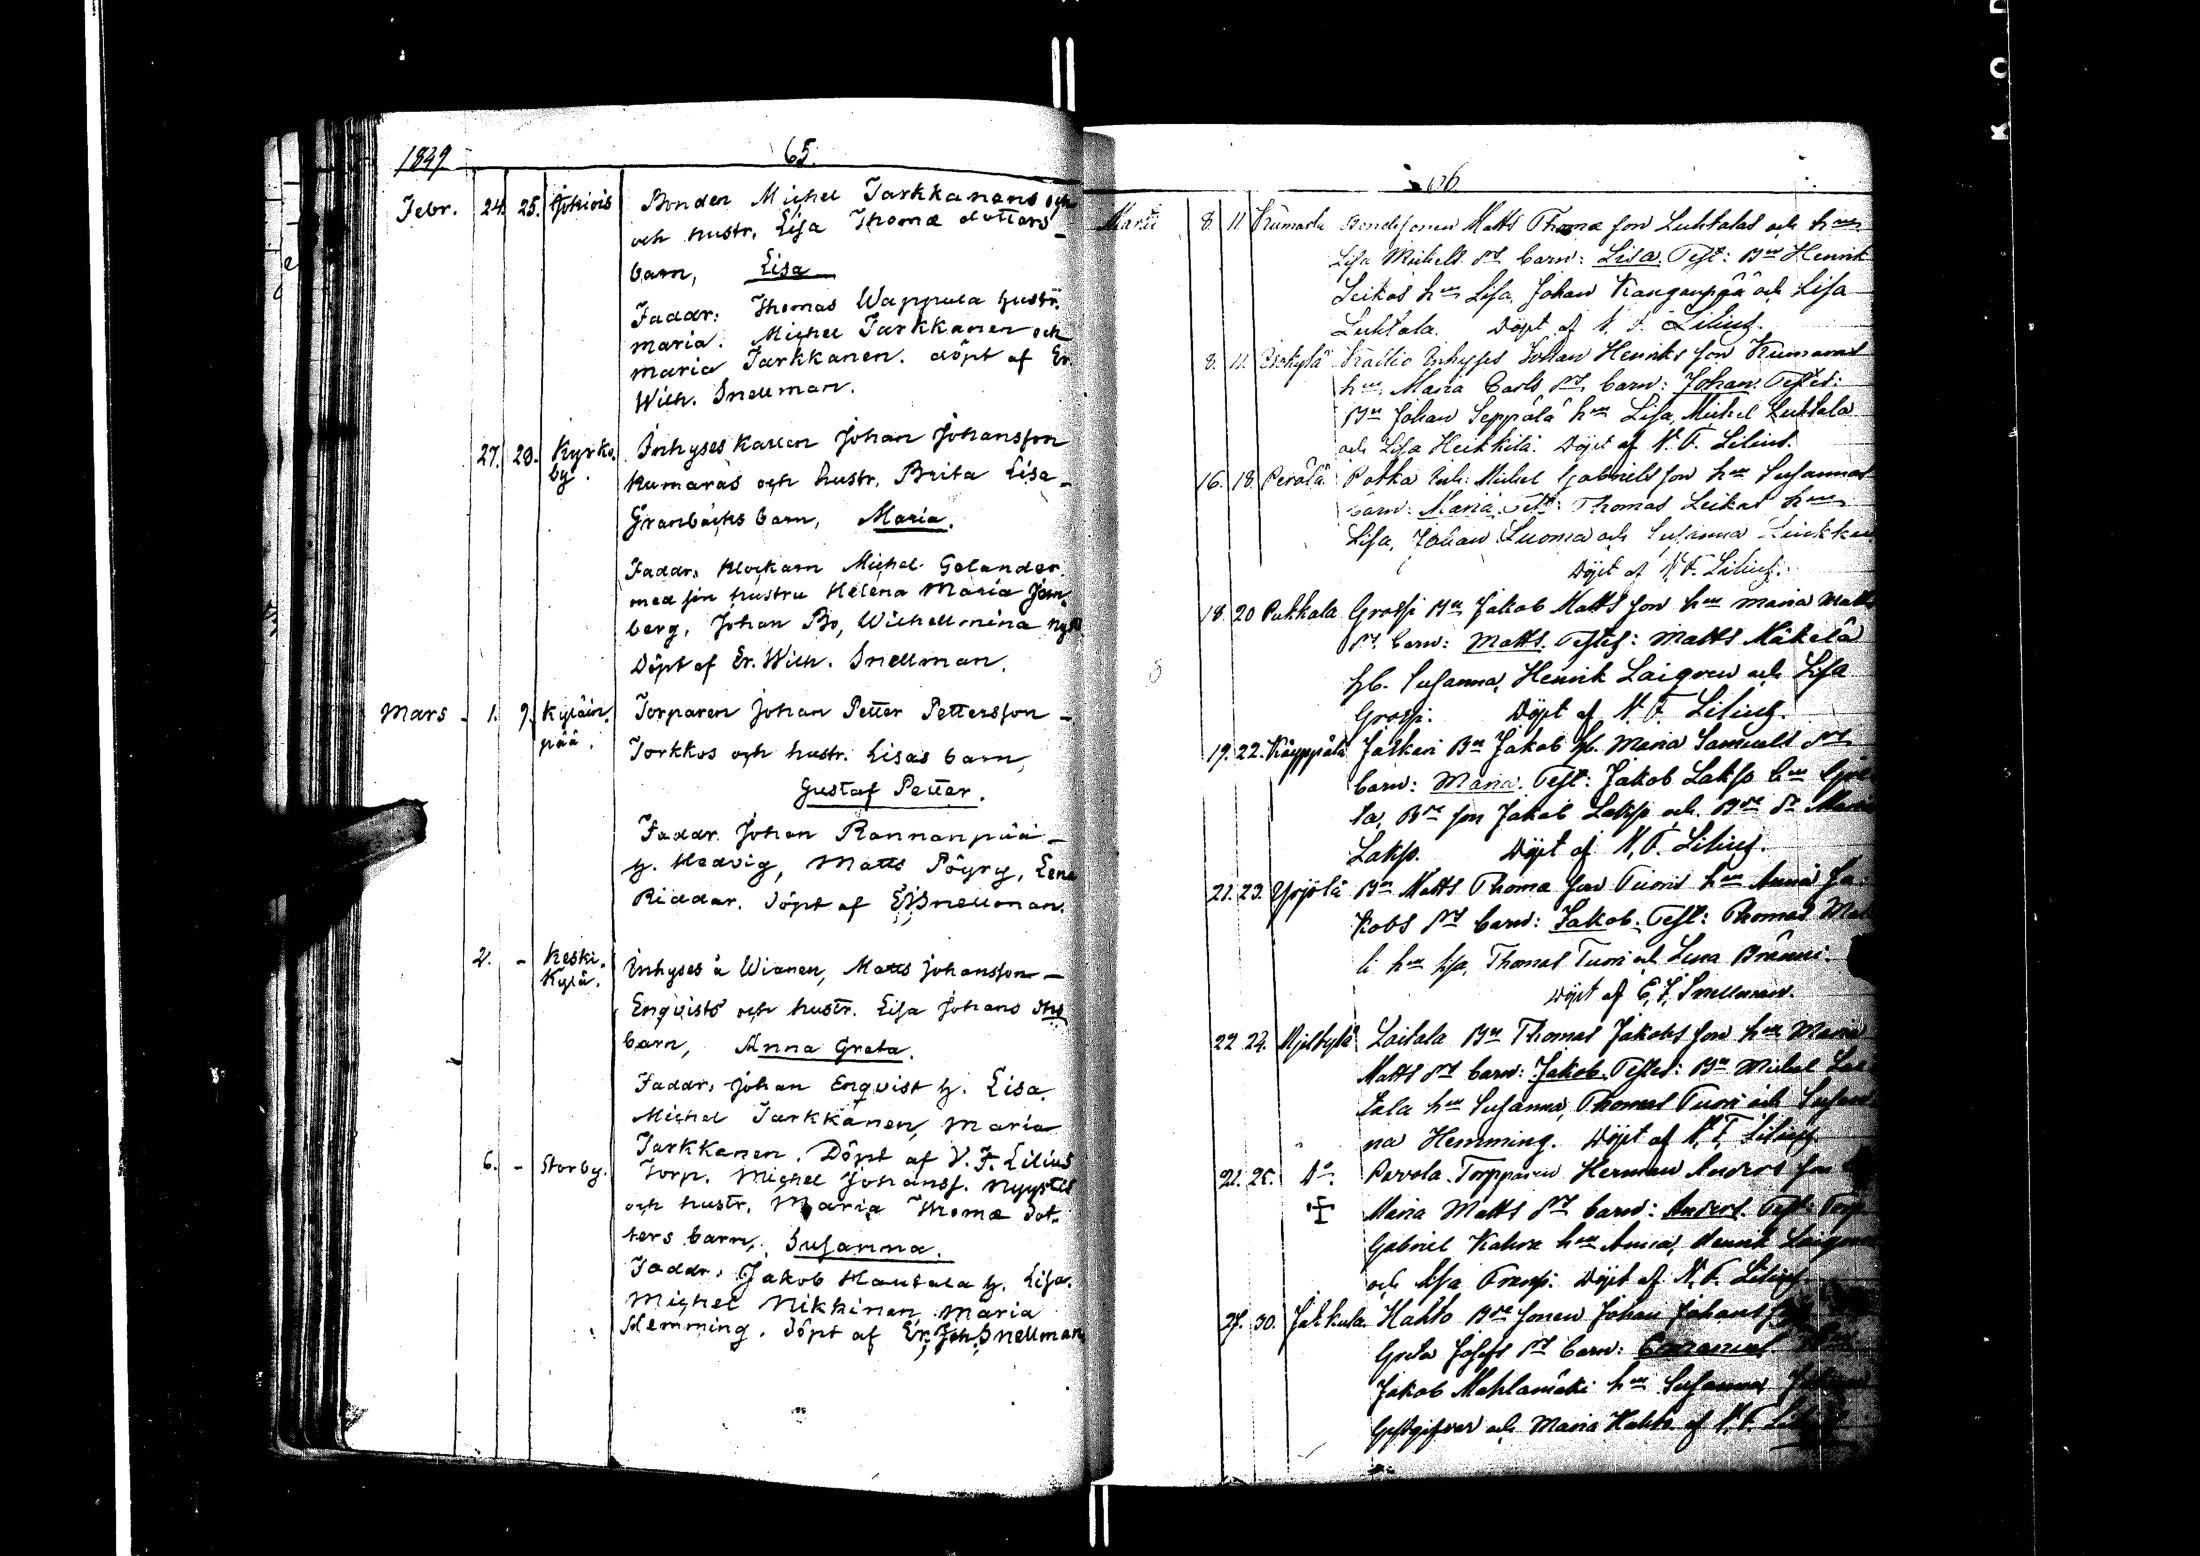 1849
65.
Febr. 24. 25. Jokiois Bonden Michel Tarkkanens och
och hustr. Lisa Thomæ dotters
barn, Lisa
Faddr: Thomas Wappula hustr.
Maria. Michel Tarkkanen och
Maria Tarkkanen. döpt af Er.
Wilh. Snellman.
27. 28. Kyrko. Inhyses Karlen Johan Johansson
by. Kumaras och hustr. Brita Lisa
Granbäcks barn, Maria.
Faddr. Klockarn Michel Gelander.
med sin hustru Helena Maria
berg, Johan Bo, Wilhelmina
Döpt af Er. Wilh. Snellman.
Mars 1. 9. Kyläin. Torparen Johan Petter Pettersson
pää. Torkkos och hustr. Lisas barn,
Gustaf Petter.
Faddr. Johan Rannanpää
h. Hedvig, Matts Pöyry, Lena
Riddar. döpt af E. J. Snellman.
2. - Keski. Inhyses å Wianen, Matts Johansson
Kylä. Enqvists och hustr. Lisa Johans
barn, Anna Greta.
Faddr. Johan Enqvist h. Lisa.
Michel Tarkkanen, Maria
Tarkkanen. Döpt af V. F. Lilius
6. - Storby. Torp. Michel Johanss. Nyysti
och hustr. Maria Thomæ dot.
ters barn, Susanna.
Faddr. Jakob Hautala h. Lisa.
Michel Nikkinen, Maria
Hemming. döpt af Er. Joh. Snellman
66
Martii 8. 11. Bondesonen Matts Thomæ son Luhtalas och hus
Lisa Michels dr barn: Lisa. Test: Bn Henrik
Leikas hus Lisa, Johan Kangaspää och Lisa
Luhtala. Döpt af V. F. Lilius.
8. 11. Kallio Inhyses Johan Henriks son
hus Maria Carls dr barn: Johan. Testes:
Bn Johan Seppälä hus Lisa, Michel Luhtala
och Lisa Heikkilä. Döpt af V. F. Lilius.
16. 18. Perälä Potka Inh. Michel Gabriels son hus Susannas
barn: Maria. Test: Thomas Leikas hus
Lisa, Johan Luoma och Susanna
Döpt af V. F. Lilius.
18. 20 Pukkala Grossi Bn Jakob Matts son hus Maria Matts
dr barn: Matts. Testes: Matts Mäkelä
h. Susanna, Henrik Laigren och Lisa
Grossi. Döpt af V. F. Lilius.
19. 22. Käyppälä Bn Jakob h. Maria Samuels dr
barn: Maria. Test: Jakob Lakso hus Gre
ta, Bde son Jakob Lakso och Bde dr Maria
Lakso. Döpt af V. F. Lilius.
21. 23. Yrjölä Bn Matts Thomæ son Tuoris hus Anna Ja
kobs dr barn: Jakob. Test: Thomas
li hus Lisa, Thomas Tuori och Lena Bränni.
Döpt af E. J. Snellman.
22 24. Laitala Bn Thomas Jakobs son hus Maria
Matts dr barn: Jakob. Testes: Bn Michel Lai
tala hus Susanna, Thomas Tuori och Susan
na Hemming. Döpt af V. F. Lilius
22. 25. Do. Torpparen Herman Anders son
Maria Matts dr barn: Anders. Test: Torp
Gabriel hus Anna, Henrik Laigren
och Lisa Döpt af V. F. Lilius.
27. 30. Jakkula Hahto Bde sonen Johan Johans
Greta Josefs dr barn: Emanuel
Jakob Mahlamäki hus Susanna
Gästgifver och Maria Hahto af V. F.